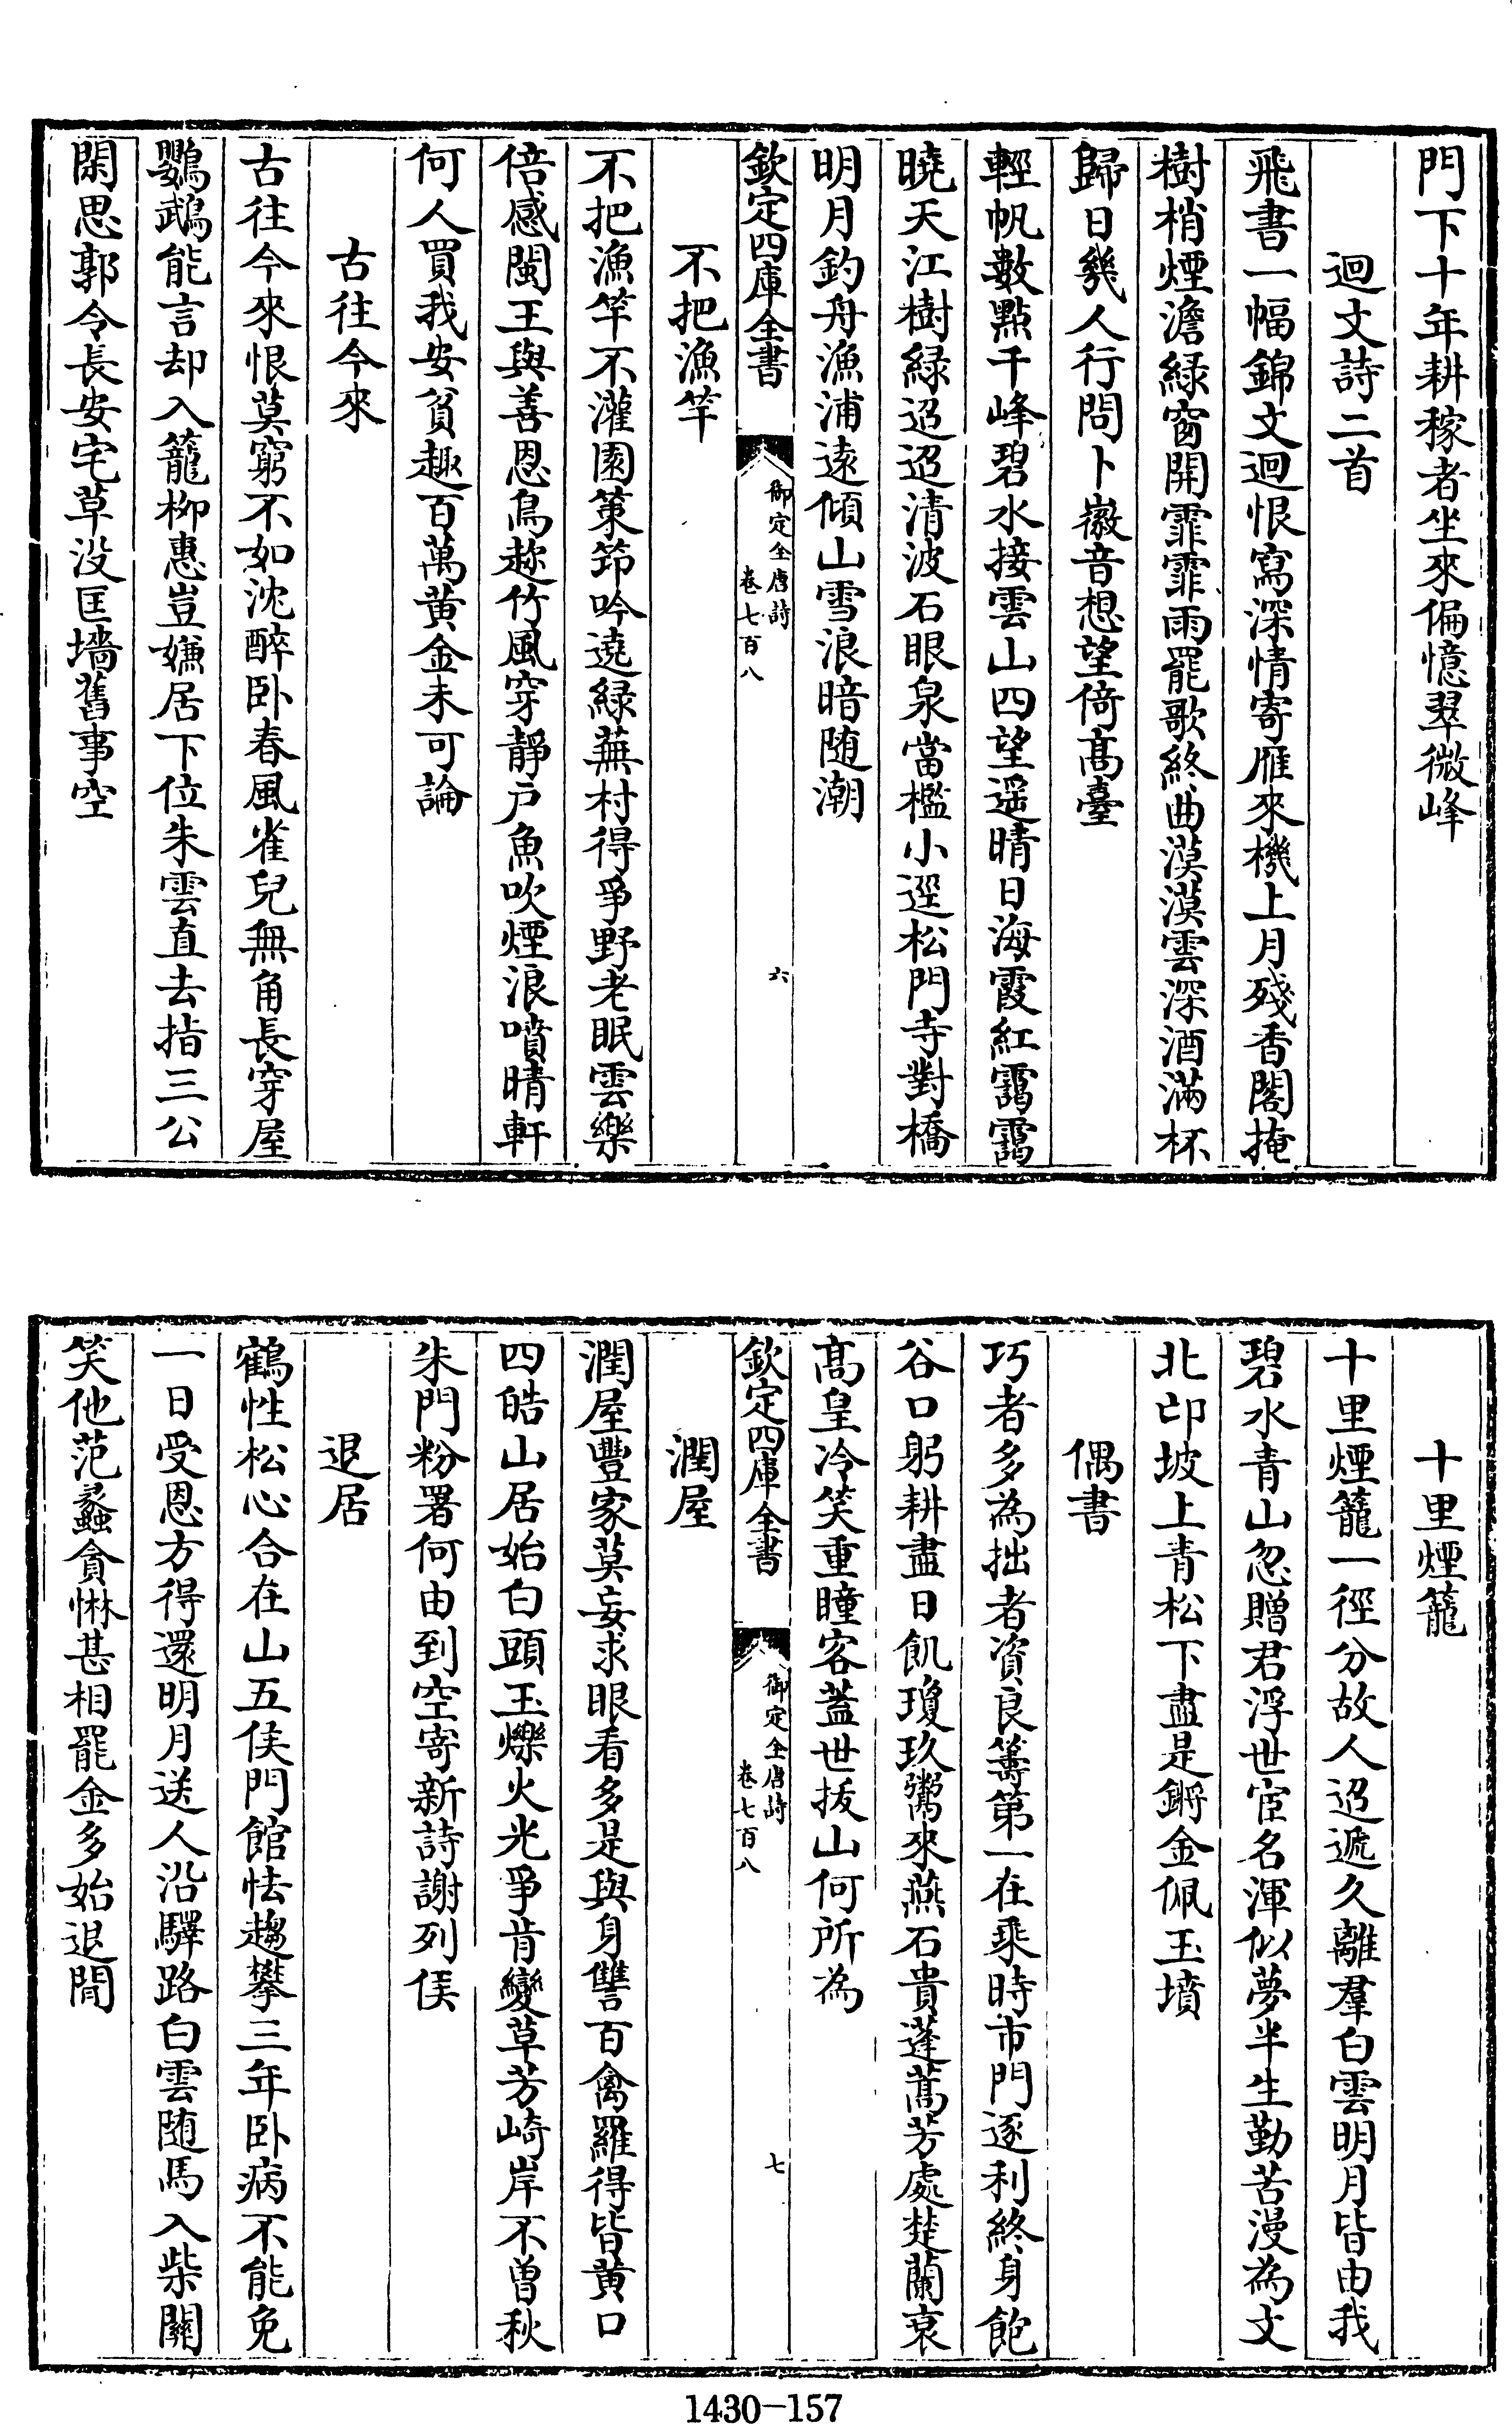 門下十年耕稼者坐來偏憶翠微峰
迴文詩二首
飛書一幅錦文迴恨寫深情寄雁來機上月殘香閣掩
樹梢煙澹綠窗開霏霏雨罷歌終曲漠漠雲深酒滿杯
歸日幾人行問卜徽音想望倚髙臺
輕帆數點千峰碧水接雲山四望遥晴日海霞紅靄靄
曉天江樹緑迢迢清波石眼泉當檻小逕松門寺對橋
明月釣舟漁浦逺傾山雪浪暗随潮
欽定四庫全書
御定全唐詩
卷七百八
六
不把漁竿
不把漁竿不灌園策筇吟遶緑蕪村得爭野老眠雲樂
倍感閩王與善恩鳥趂竹風穿靜户魚吹煙浪噴晴軒
何人買我安貧趣百萬黄金未可論
古往今來
古往今來恨莫窮不如沈醉卧春風雀兒無角長穿屋
鸚鵡能言却入籠柳惠豈嫌居下位朱雲直去指三公
閑思郭令長安宅草没匡墻舊事空
十里煙籠
十里煙籠一徑分故人迢遞久離羣白雲明月皆由我
碧水青山忽贈君浮世宦名渾似夢半生勤苦漫為文
北邙坡上青松下盡是鏘金佩玉墳
偶書
巧者多為拙者資良籌第一在乘時市門逐利終身飽
谷口躬耕盡日飢瓊玖鬻來燕石貴蓬蒿芳處楚蘭衰
髙皇冷笑重瞳客蓋世拔山何所為
欽定四庫全書
御定全唐詩
卷七百八
七
潤屋
潤屋豐家莫妄求眼看多是與身讐百禽羅得皆黄口
四皓山居始白頭玉爍火光爭肯變草芳崎岸不曾秋
朱門粉署何由到空寄新詩謝列侯
退居
鶴性松心合在山五侯門館怯趨攀三年卧病不能免
一日受恩方得還明月送人沿驛路白雲随馬入柴關
笑他范蠡貪惏甚相罷金多始退閒
1430-157